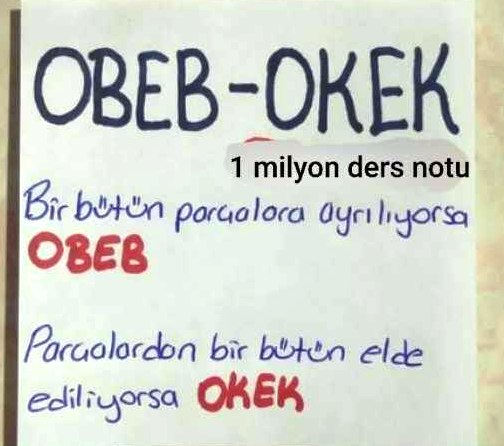 OBEB-OKEK
1 milyon ders notu
Bir bütün parçalara ayrılıyorsa
OBEB
Parçalardan bir bütün elde
ediliyorsa OKEK